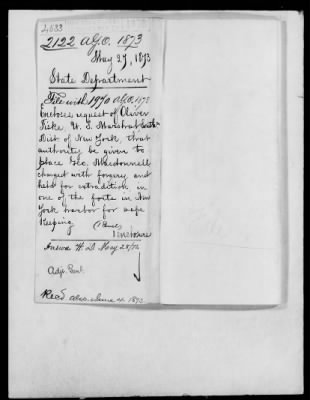 4633
2122 A.G.O. 1873
May 27, 1873
State Department
File with 1970 A.G.O. 1873
Encloses request of Oliver
Fiske, U. S. Marshal South'n
Dist of New York, that
authority be given to
place Geo. Macdonnell
charged with forgery and
held for extradition in
one of the forts in New
York harbor for safe
keeping
1 enclosure
W. D. May 28/73
Adjt. Genl.
Recd June 1873